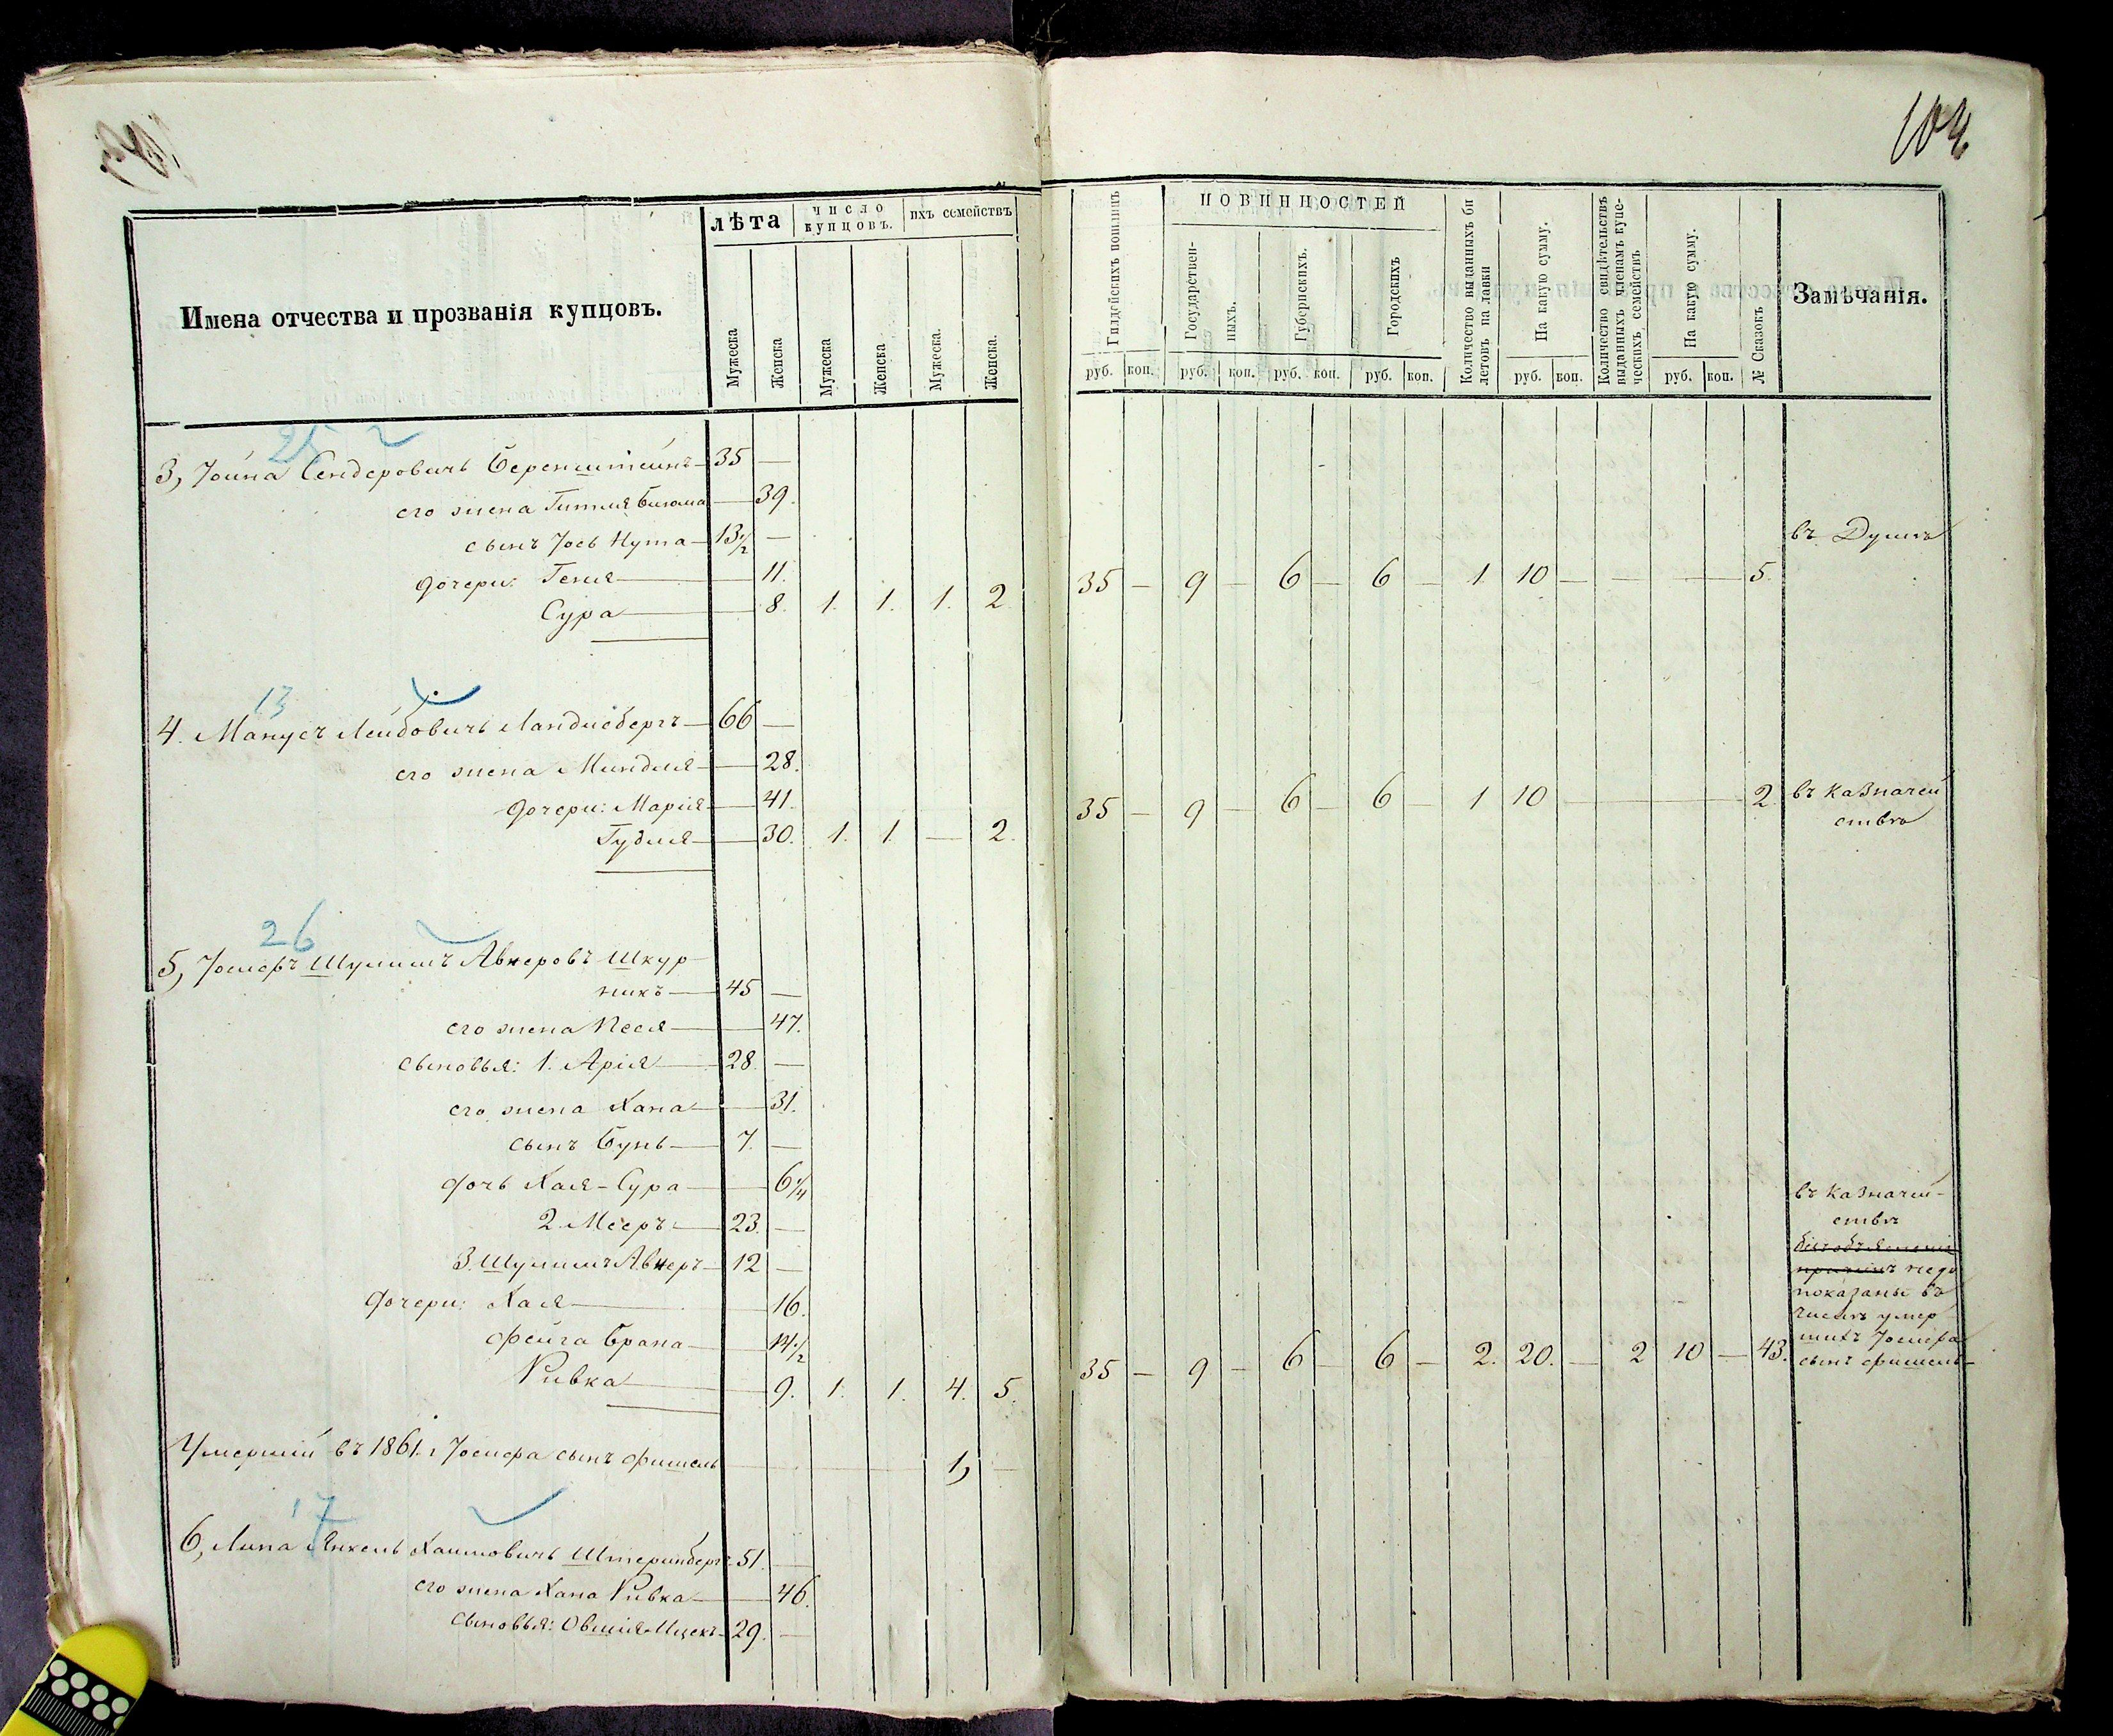 104
Имена отчества и прозванія купцовъ.
лѣта
число купцовъ.
ихъ семействъ
Мужеска
Женска
Мужеска
Женска
Мужеска.
Женска.
Гилдейскихъ пошлинъ
ПОВИННОСТЕЙ
Государствен-
ныхъ.
Губернскихъ.
Городскихъ
Количество выданныхъ би
летовъ на лавки
На какую сумму.
Количество свидѣтельствъ
выданныхъ членамъ купе-
ческихъ семействъ
На какую сумму.
№ Сказокъ
Замѣчанія.
руб. коп. руб. коп. руб. коп. руб. коп. руб. коп. руб. коп.
25
3, Іойна Сендеровичь Беренштейнъ — 35 —
его жена Гитля Блюма — 39.
сынъ Іось Нута — 13 1/2 —
въ Думѣ
дочери: Геня — 11.
Сура — 8. 1. 1. 1. 2. 35 — 9 — 6 — 6 — 1 10 — — — 5.
13
4. Манусъ Лейбовичь Ландисбергъ — 66 —
его жена Миндля — 28.
дочери: Марія — 41.
Гудля — 30. 1. 1. — 2. 35 — 9 — 6 — 6 — 1 10 — — — 2.
въ казначей
ствѣ
26
5, Іосифъ Шулимъ Авнеровъ Шкур-
никъ — 45 —
его жена Песя — 47.
сыновья: 1. Арія — 28. —
его жена Хана — 31.
сынъ Бунь — 7. —
дочь Хая-Сура — 6 1/4
2. Мееръ — 23. —
3. Шулимъ Авнеръ — 12 —
дочери: Хая — 16.
Фейга Брана — 14 1/2
Ривка — 9. 1. 1. 4. 5. 35 — 9 — 6 — 6 — 2. 20. — 2 10 — 43.
въ казначей-
ствѣ
показаны въ
числѣ умер
шихъ Іосифа
сынъ Фишель
Умершій въ 1861. г Іосифа сынъ Фишель — 1, —
17
6, Липа Янкель Хаимовичь Штеринбергъ — 51. —
его жена Хана Ривка — 46.
сыновья: Овшія Ицекъ — 29. —